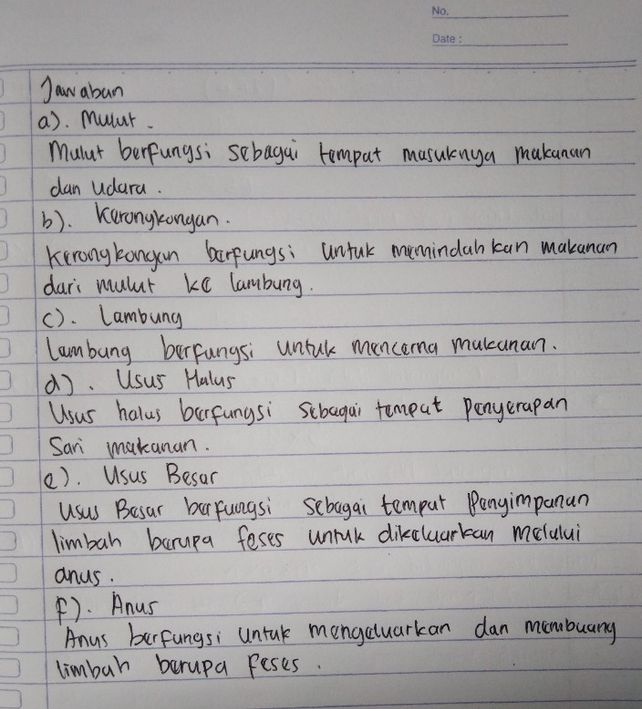 No.
Date :
Jawaban
a). Mulut.
Mulut berfungsi sebagai tempat masuknya makanan
dan udara.
b). Kerongkongan.
Kerongkongan berfungsi untuk memindahkan makanan
dari mulut ke lambung.
c). Lambung
Lambung berfungsi untuk mencerna makanan.
d). Usus Halus
Usus halus berfungsi sebagai tempat penyerapan
Sari makanan.
e). Usus Besar
Usus Besar berfungsi sebagai tempat Penyimpanan
limbah berupa feses untuk dikeluarkan melalui
anus.
f). Anus
Anus berfungsi untuk mengeluarkan dan membuang
limbah berupa feses.